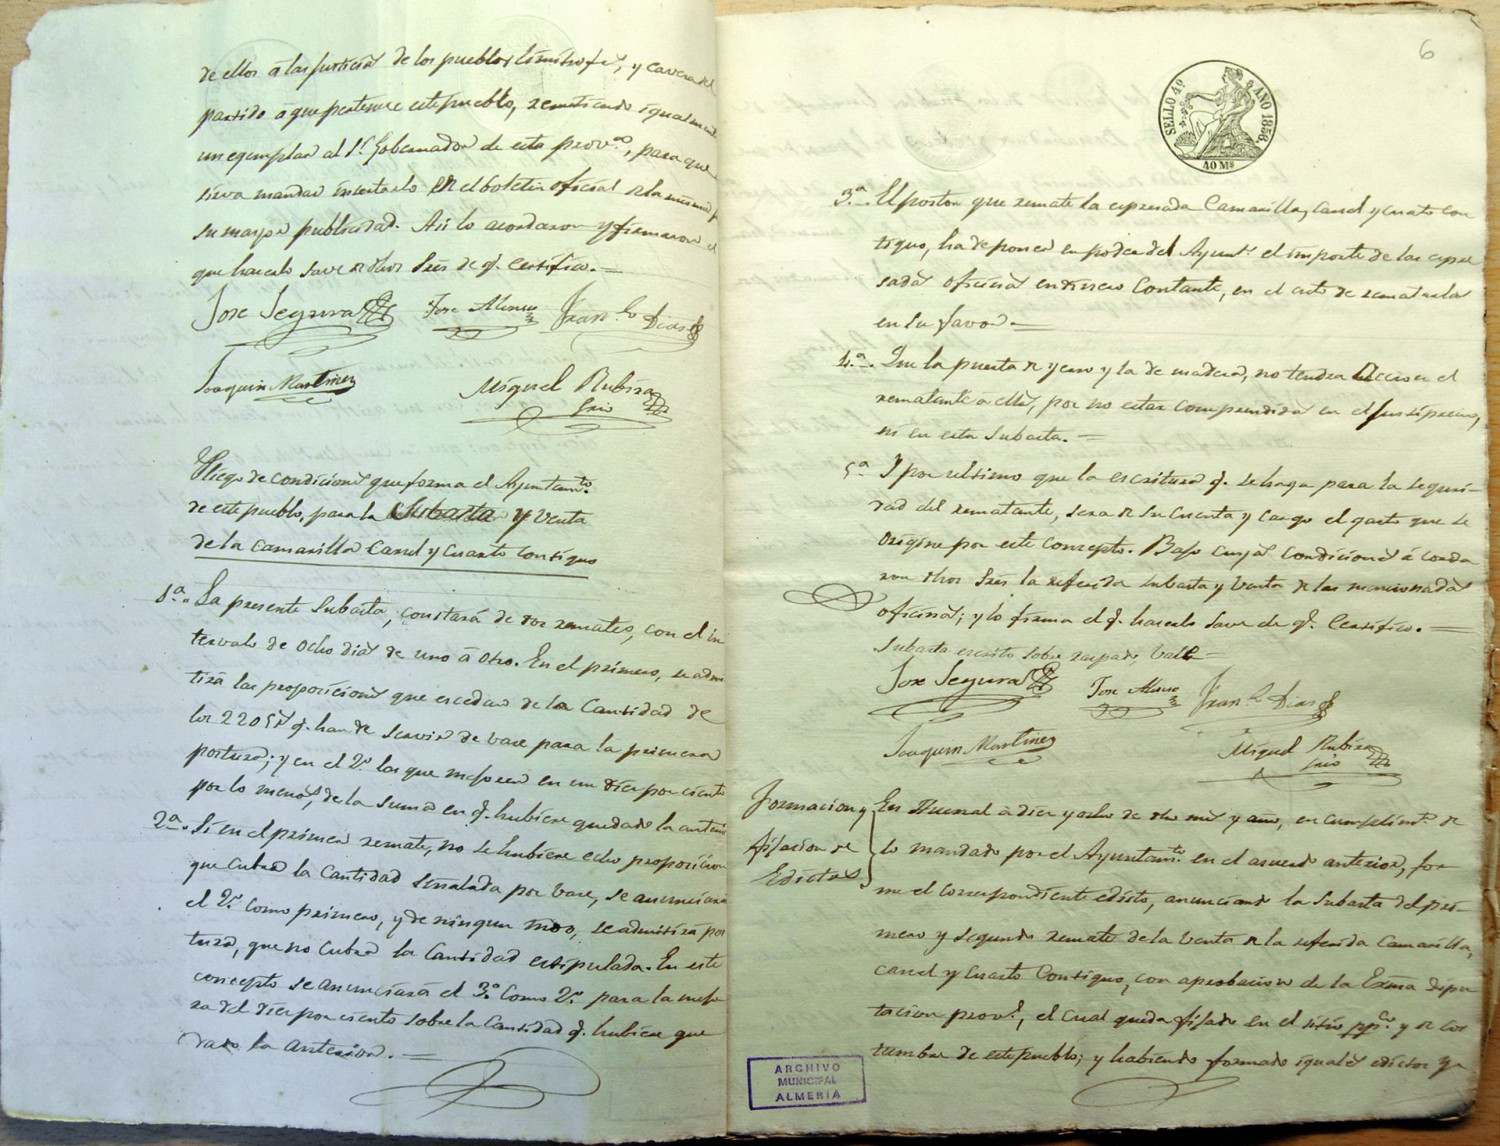 de ellos á las justicias de los pueblos limitrofes, y cavera del
partido á que pertenece este pueblo, remitiendo igualmente
un egemplar al Sr. Gobernador de esta provª, para que
sirva mandar insertarlo en el boletin oficial de la misma p
su mayor publicidad. Asi lo acordaron y firmaron el
que hacerlo save de dhos Sres de q. Certifico.=
Jose Segura
Jose Alonso
Franco Dias
Joaquin Martinez
Miguel Rubira
Srio
Pliego de condiciones que forma el Ayuntamto
de este pueblo, para la Subasta y Venta
de la Camarilla Carcel y Cuarto Contiguo
1ª. La presente Subasta, constará de dos remates, con el in
tervalo de ocho dias de uno á otro. En el primero, se admi
tirá las proposiciones que escedan de la Cantidad de
los 2205 rs q. han de servir de vase para la primera
postura; y en el 2º las que mejoren en un diez por ciento
por lo menos, de la suma en q. hubiere quedado la anterior
2ª. Si en el primer remate, no se hubiere echo proposicion
que cubra la Cantidad señalada por vase, se anunciara
el 2º como primero, y de ningun modo, se admitirá pos
tura, que no cubra la Cantidad estipulada. En este
concepto se anunciará el 3º como 2º para la mejo
ra del diez por ciento sobre la Cantidad q. hubiere que
dado la anterior.=
6
SELLO 4º AÑO 1856.
40 Ms
3ª. El postor que remate la espresada Camarilla, Carcel y Cuarto con
tiguo, ha de poner en poder del Ayunto el importe de las espre
sadas oficinas en dinero Contante, en el acto de rematarla
en su favor.=
4ª. Que la puerta de yerro y la de madera, no tendra accion el
rematante a ellas, por no estar comprendidas en el justiprecio,
ni en esta Subasta.=
5ª Y por ultimo que la escritura q. se haga para la seguri-
dad del rematante, sera de su Cuenta y Cargo el gasto que se
origine por este Concepto. Bajo cuyas Condiciones acorda
ron dhos Sres la referida subasta y Venta de las mencionadas
oficinas; y lo firma el q. hacerlo save de q. Certifico.=
Subasta escrito sobre raspado, Vale=
Jose Segura
Jose Alonso
Franco Dias
Joaquin Martinez
Miguel Rubira
Srio
Formacion y
fijacion de
Edictos
En Huercal á diez y ocho de dho mes y año, en Cumplimto de
lo mandado por el Ayuntamto en el acuerdo anterior, for
me el correspondiente edicto, anunciando la Subasta del pri-
mero y segundo remate de la Venta de la referida Camarilla,
carcel y Cuarto Contiguo, con aprobacion de la Exma dipu
tacion provl, el cual queda fijado en el sitio ppco y de cos
tumbre de este pueblo; y habiendo formado iguales edictos y
ARCHIVO
MUNICIPAL
ALMERIA